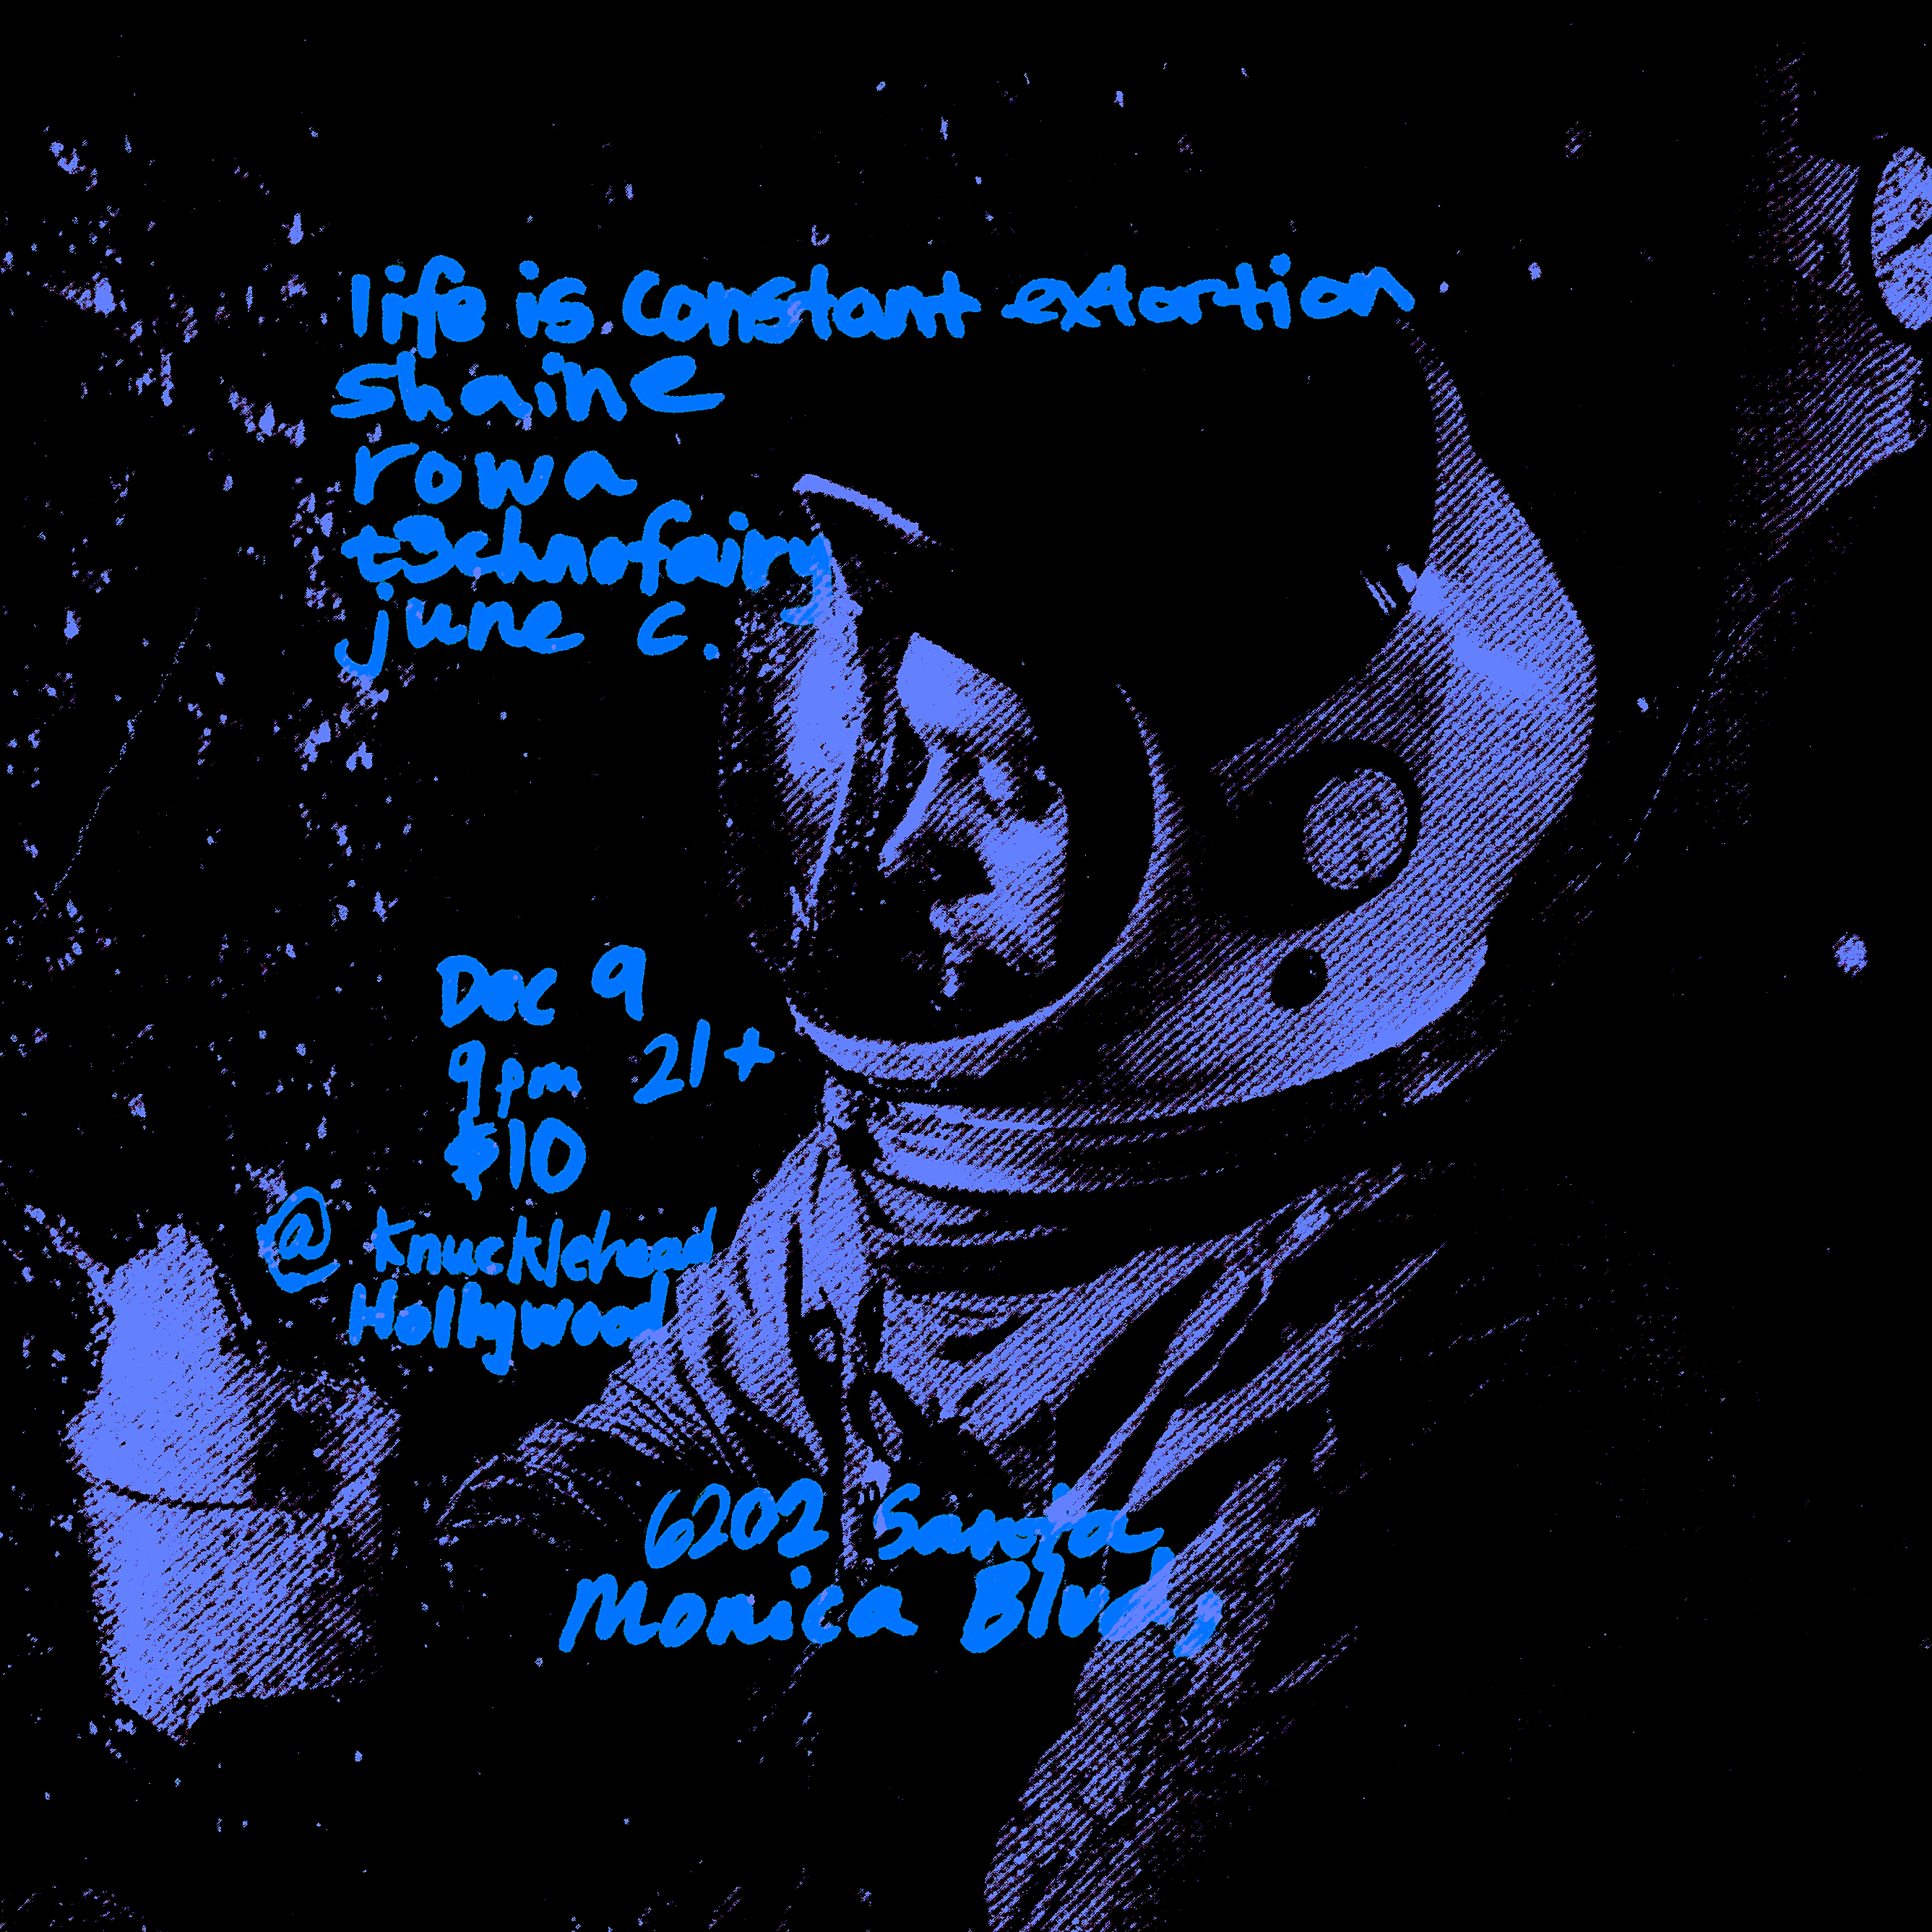 life is constant extortion
shaine
rowa
t3chnofairy
june c.
Dec 9
9pm 21+
$10
@ Knucklehead
Hollywood
6202 Santa
Monica Blvd,